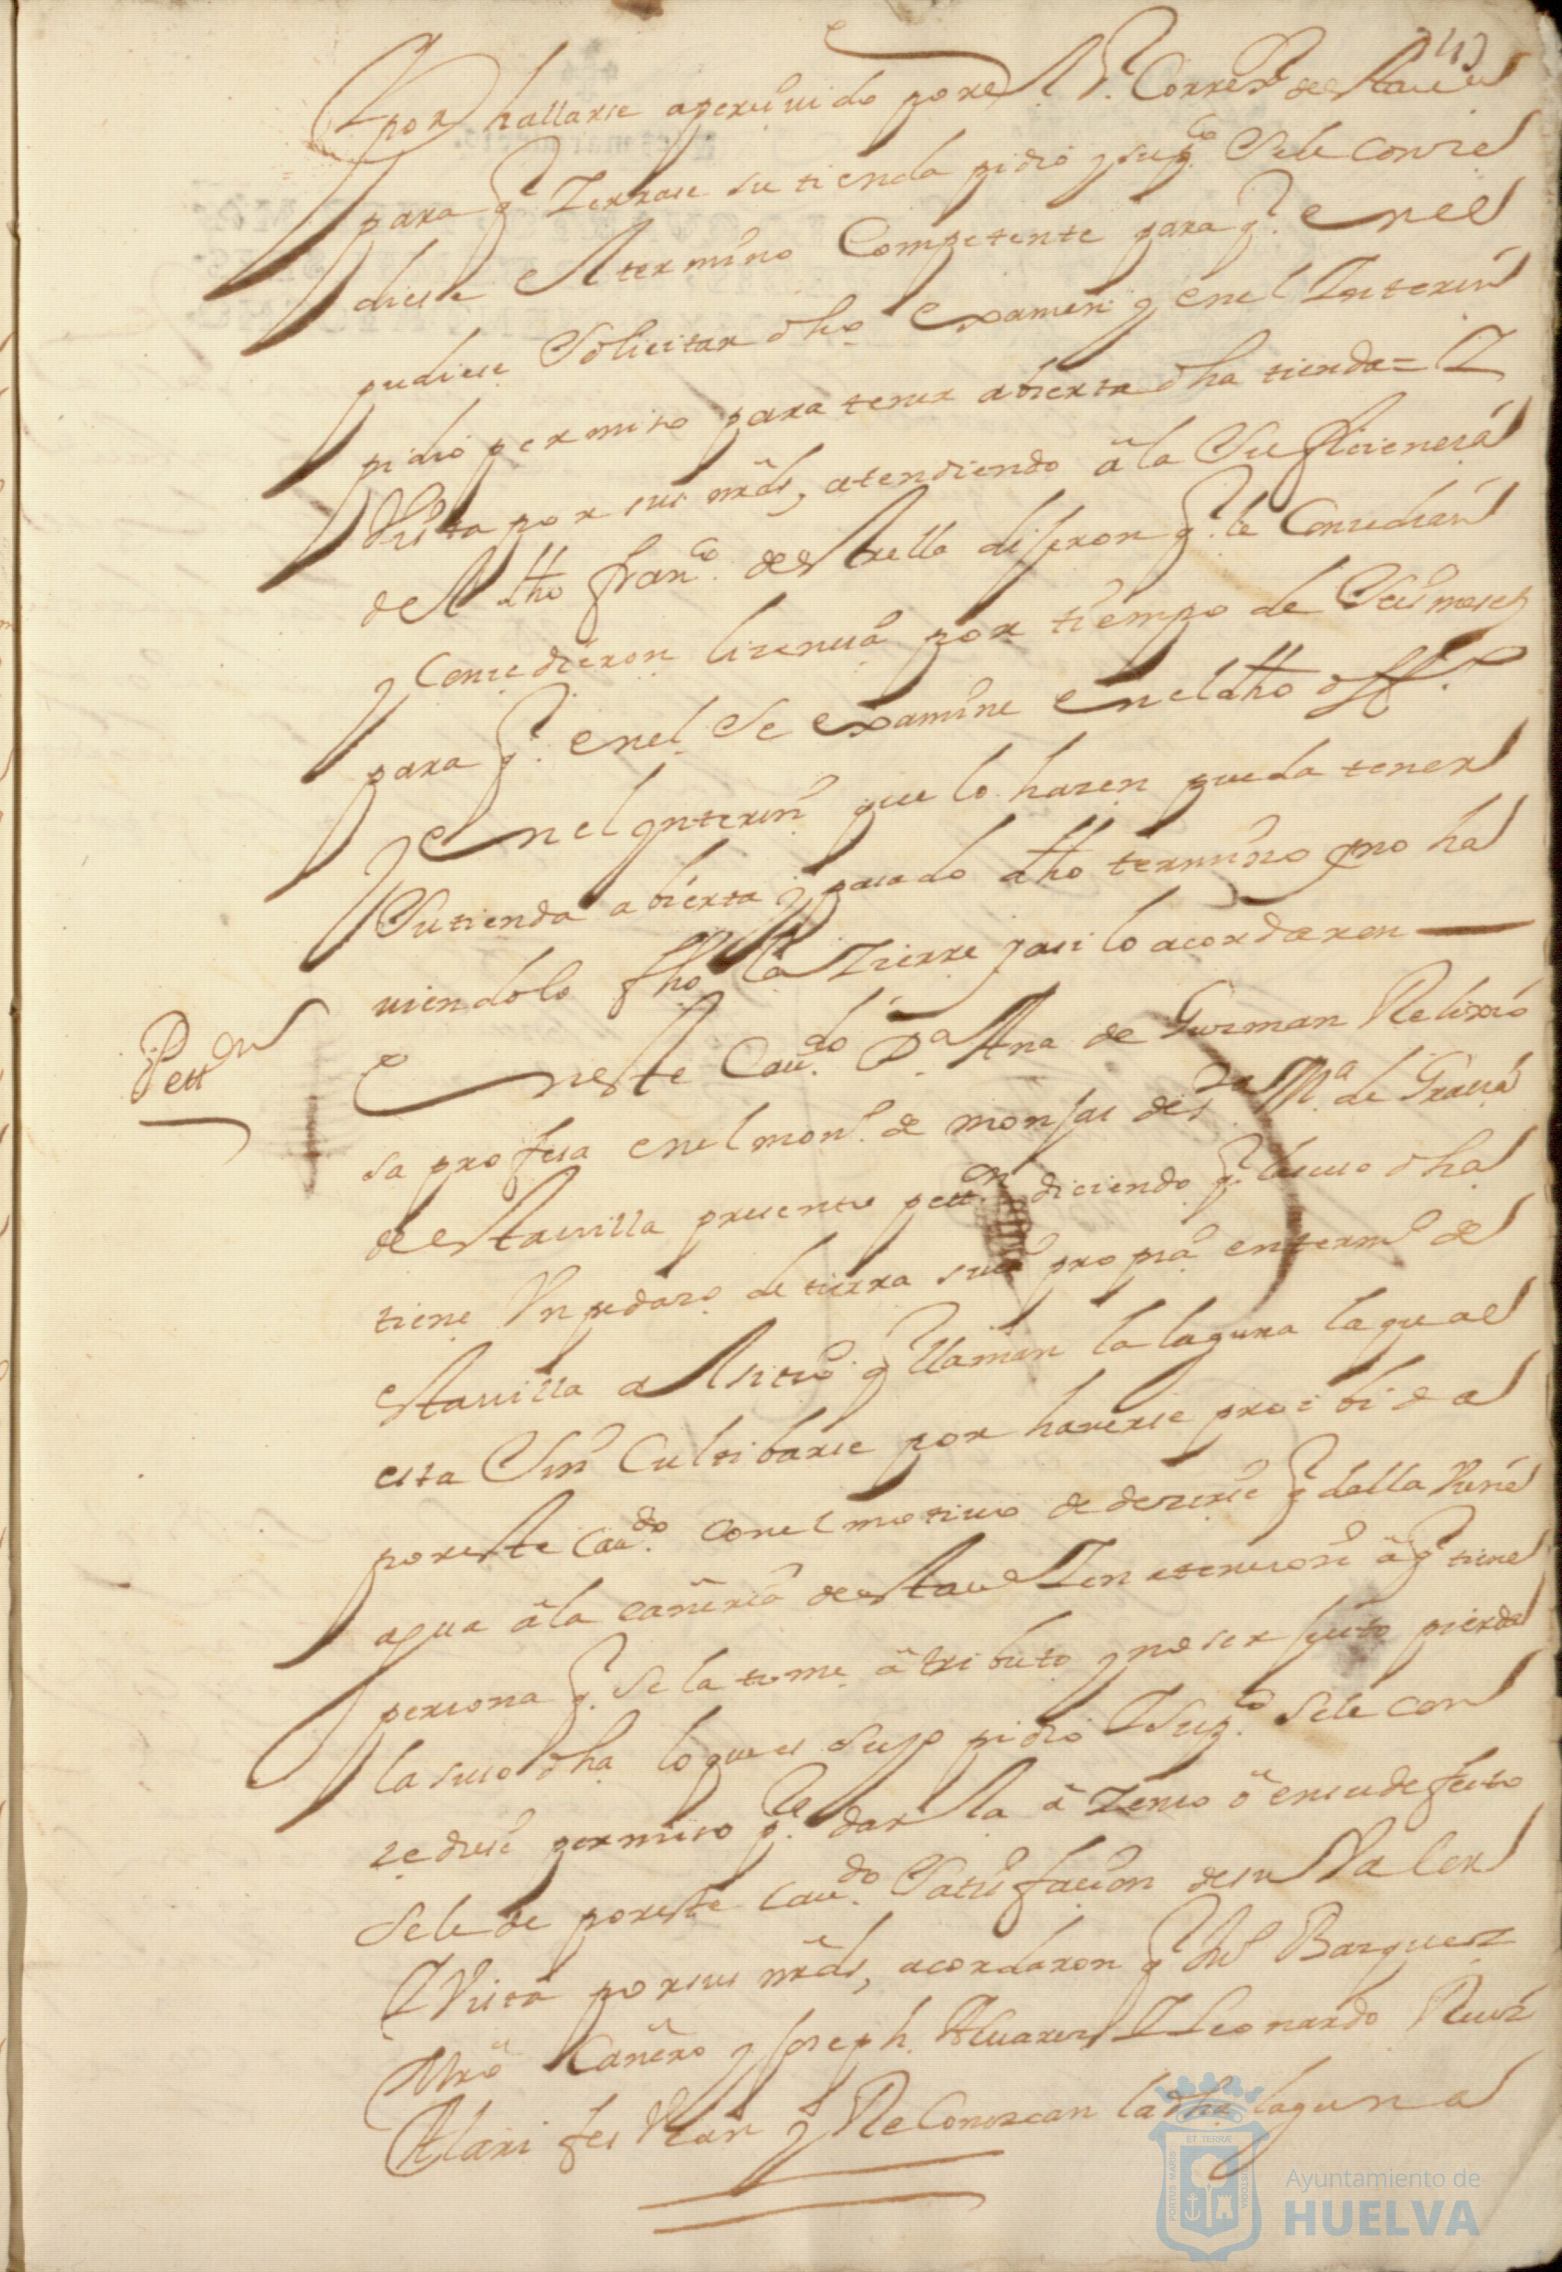 por hallarse aperseuido por el Sr. Correxr. de esta uilla
para q. Zerrase su tienda pidio y supco. Se le conze
diese el termino Competente para q. en el
pudiese Solicitar dho examen y en el Interin
pidio permiso para tener abierta dha tienda = Y
Vista por sus mrds, atendiendo a la Suficiencia
del dho franco. de estrella dijeron q. le Concedian
y Concedieron lizencia por tiempo de Seis meses
para q. en el Se examine en el dho offo.
y en el ynterin que lo hazen pueda tener
Su tienda abierta y pasado dho termino y no ha
uiendolo fho la Zierre y asi lo acordaron
Petton
En este Caudo. Da. Ana de Guzman Relixio
sa profesa en el mono. de monjas de sra. Ma. de Gracia
de esta uilla presento petton. diciendo q. la suso dha
tiene Un pedazo de tierra suia propia en termo. de
esta uilla al sitio q llaman la laguna la qual
esta Sin Cultibarse por hauerse proibido
por este Caudo. con el motiuo de dezirse q. della Viene
agua a la cañeria de esta ua Y en atencion a q. tiene
persona q. Se la tome a tributo y no ser justo pierda
la suso dha lo que es Suyo pidio Y supco. Se le con
zediese permiso pa. dar la a Zenso o en su defecto
Se le de por este Caudo. Satisfacion de su Valor
Y Vista por sus mrds, acordaron q. Juo Bazquez
Mro Cañero y Joseph Aluarez Y Leonardo Ruiz
Alarifes Vean y Reconozcan la dha laguna
Ayuntamiento de
HUELVA
PORTUS MARIS
ET TERRÆ
CUSTODIA